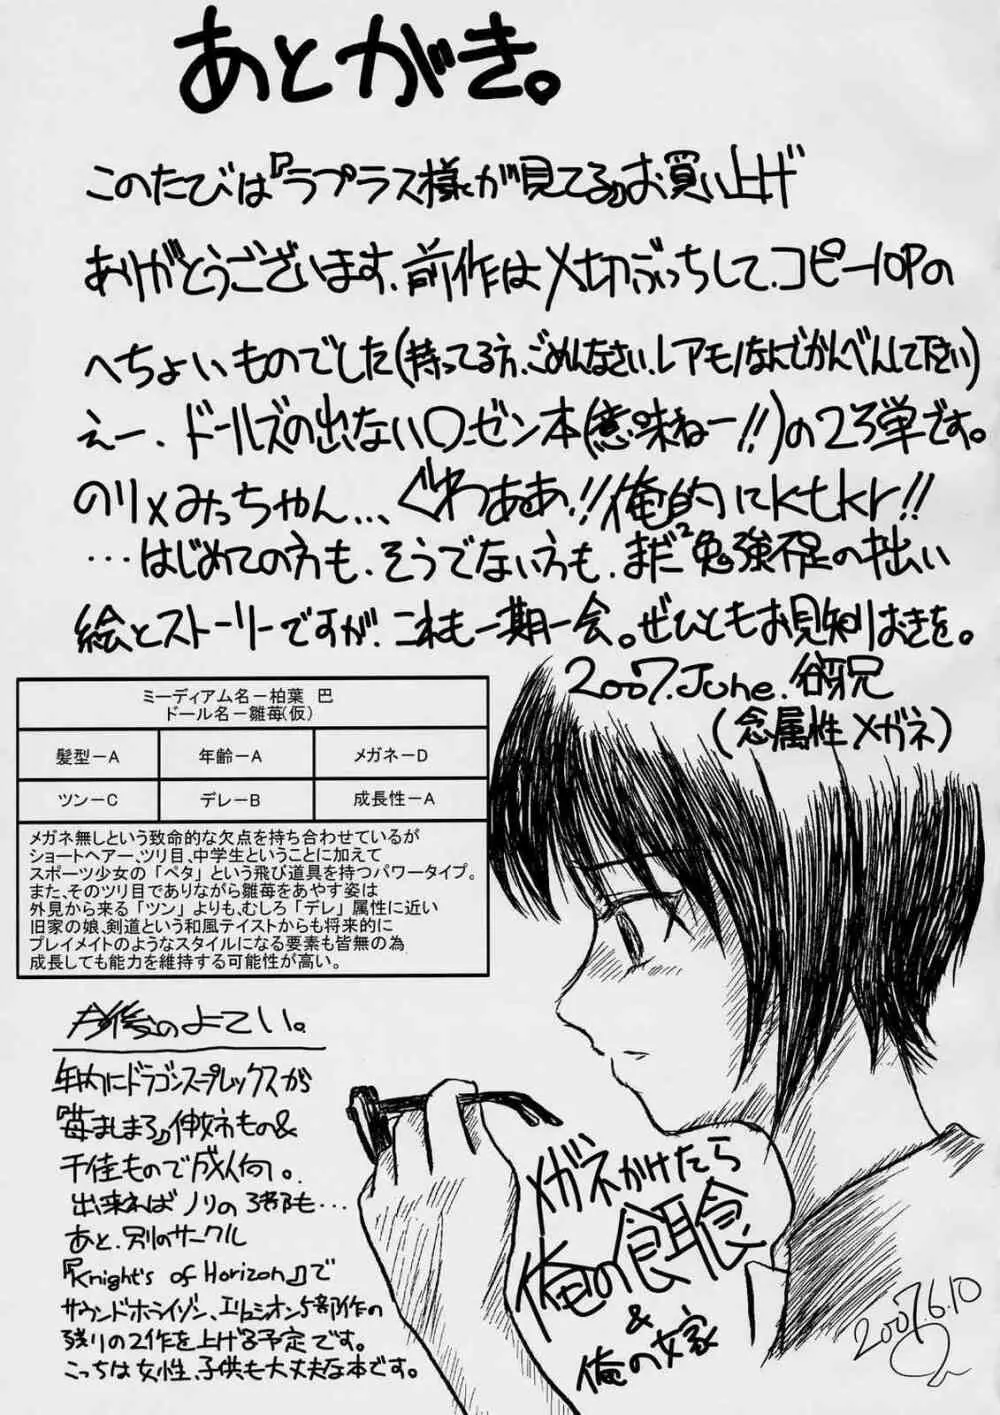 あとがき。
このたびは『ラプラス様が見てる』お買い上げ
ありがとうございます、前作は〆切ぶっちして、コピー10Pの
へちょいものでした(持ってる方、ごめんなさい、レアモノなんでかんべんして下さい)
えー、ドールズの出ないローゼン本(意味ねー!!)の2弾です。
のり×みっちゃん…、ぐわぁあ、!!俺的にktkr!!
…はじめての方も、そうでない方も、まだ²勉強不足の拙い
絵とストーリーですが、これも一期一会。ぜひともお見知りおきを。
2007.June.谺兄
(念属性メガネ)
ミーディアム名－柏葉 巴
ドール名－雛苺(仮)
髪型－A
年齢－A
メガネ－D
ツン－C
デレ－B
成長性－A
メガネ無しという致命的な欠点を持ち合わせているが
ショートヘアー、ツリ目、中学生ということに加えて
スポーツ少女の「ペタ」という飛び道具を持つパワータイプ。
また、そのツリ目でありながら雛苺をあやす姿は
外見から来る「ツン」よりも、むしろ「デレ」属性に近い
旧家の娘、剣道という和風テイストからも将来的に
プレイメイトのようなスタイルになる要素も皆無の為
成長しても能力を維持する可能性が高い。
今後のよてい。
年内にドラゴンスープレックスから
『苺ましまろ』伸恵もの&
千佳もので成人向。
出来ればノリの3部も…
あと、別のサークル
『Knight's of Horizon』で
サウンドホライゾン、エリュシオン5部作の
残りの2作を上げる予定です。
こっちは女性、子供も大丈夫な本です。
メガネかけたら
俺の餌食
&
俺の嫁
2007.6.10